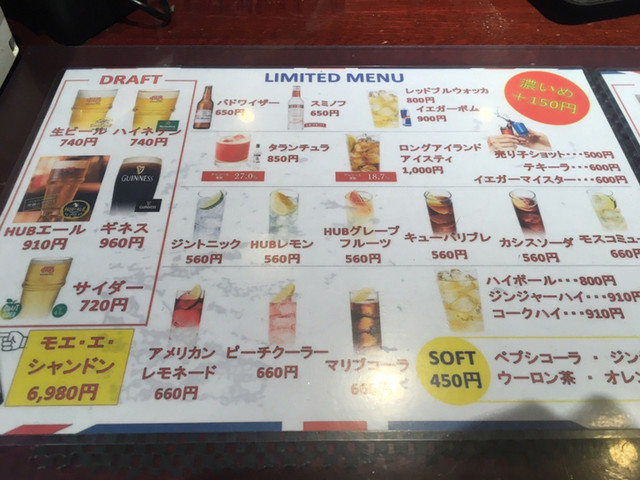 DRAFT
LIMITED MENU
生ビール ハイネケン
740円 740円
HUBエール ギネス
910円 960円
GUINNESS
サイダー
720円
モエ・エ・
シャンドン
6,980円
バドワイザー
650円
スミノフ
650円
レッドブルウォッカ
800円
イエガーボム
900円
濃いめ
+150円
タランチュラ
850円
27.0
ロングアイランド
アイスティ
1,000円
18.7
売り子ショット・・・500円
テキーラ・・・600円
イエガーマイスター・・・600円
ジントニック
560円
HUBレモン
560円
HUBグレープ
フルーツ
560円
キューバリブレ
560円
カシスソーダ
560円
モスコミュー
560円
アメリカン
レモネード
660円
ピーチクーラー
660円
マリブコーラ
ハイボール・・・800円
ジンジャーハイ・・・910円
コークハイ・・・910円
SOFT
450円
ペプシコーラ ・ ジン
ウーロン茶 ・ オレン